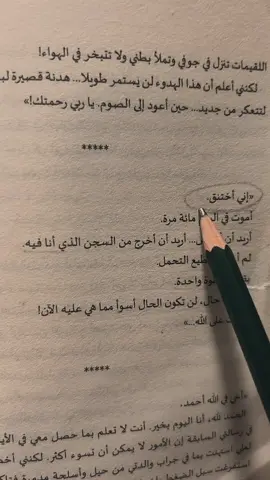 اللقيمات تنزل في جوفي وتملأ بطني ولا تتبخر في الهواء!
لكنني أعلم أن هذا الهدوء لن يستمر طويلا... هدنة قصيرة
لتتعكر من جديد... حين أعود إلى الصوم. يا ربي رحمتك!»
*****
«إني أختنق.
أموت في مائة مرة.
أريد أن ... أريد أن أخرج من السجن الذي أنا فيه.
التحمل.
واحدة.
حال، لن تكون الحال أسوأ مما هي عليه الآن!
على الله...»
*****
«أخي في الله أحمد،
الحمد لله، أنا اليوم بخير. أنت لا تعلم بما حصل معي في
في رسالتي السابقة إن الأمور لا يمكن أن تسوء أكثر. لكنني
بما في جراب والدتي من حيل وأسلحة